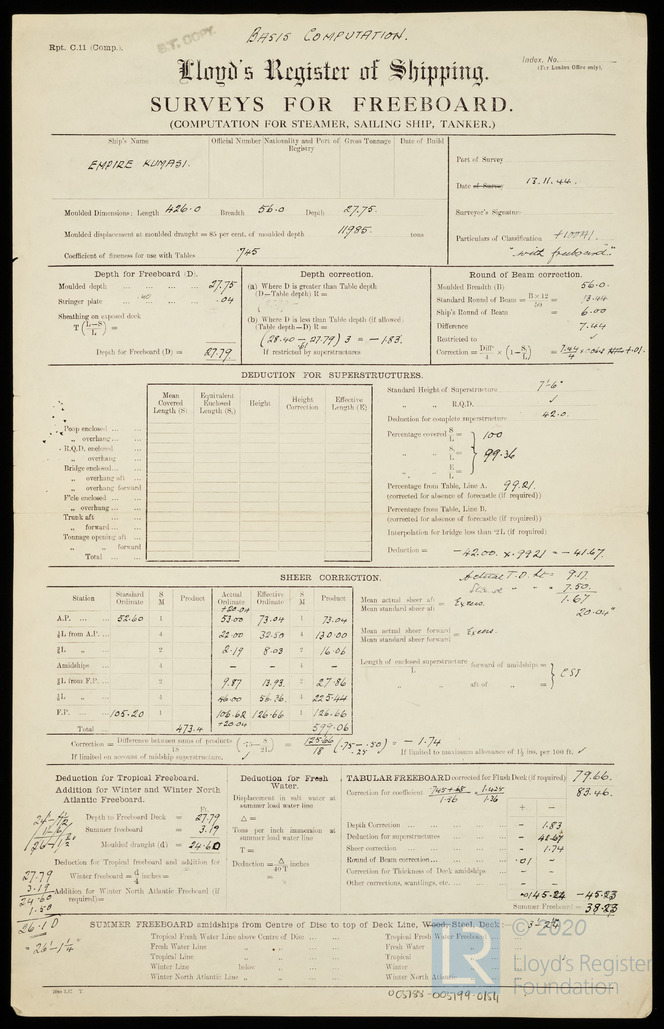 BASIS COMPUTATION.
Rpt. C.11 (Comp.).
B.T. COPY.
Index. No.
(For London Office only).
Lloyd's Register of Shipping.
SURVEYS FOR FREEBOARD.
(COMPUTATION FOR STEAMER, SAILING SHIP, TANKER.)
Ship's Name Official Number Nationality and Port of Registry Gross Tonnage Date of Build
EMPIRE KUMASI.
Port of Survey
Date of Survey 13.11.44.
Surveyor's Signature
Particulars of Classification +100A1.
"with freeboard".
Moulded Dimensions: Length 426.0 Breadth 56.0 Depth 27.75.
Moulded displacement at moulded draught = 85 per cent. of moulded depth 11985. tons
Coefficient of fineness for use with Tables .745
Depth for Freeboard (D).
Moulded depth ... ... ... ... 27.75
Stringer plate ... .04
Sheathing on exposed deck
T (L-S/L) =
Depth for Freeboard (D) = 27.79
Depth correction.
(a) Where D is greater than Table depth
(D—Table depth) R =
(b) Where D is less than Table depth (if allowed)
(Table depth—D) R =
(28.40 - 27.79) 3 = -1.83.
If restricted by superstructures
Round of Beam correction.
Moulded Breadth (B) 56.0.
Standard Round of Beam = B×12/50 = 13.44
Ship's Round of Beam = 6.00
Difference 7.44
Restricted to
Correction = Diff/4 × (1-S/L) = 7.44/4 +.01.
DEDUCTION FOR SUPERSTRUCTURES.
Mean Covered Length (S) Equivalent Enclosed Length (S₁) Height Height Correction Effective Length (E)
Poop enclosed ... ...
„ overhang ... ...
R.Q.D. enclosed
„ overhang
Bridge enclosed... ...
„ overhang aft ...
„ overhang forward
F'cle enclosed ... ...
„ overhang ... ...
Trunk aft ... ...
„ forward ... ...
Tonnage opening aft ...
„ „ forward
Total ... ...
Standard Height of Superstructure 7'-6"
„ „ R.Q.D. ✓
Deduction for complete superstructure 42.0.
Percentage covered S/L = 100
„ „ S₁/L = 99.36
„ „ E/L =
Percentage from Table, Line A. 99.21.
(corrected for absence of forecastle (if required))
Percentage from Table, Line B.
(corrected for absence of forecastle (if required))
Interpolation for bridge less than ·2L (if required)
Deduction = -42.00 × .9921 = -41.67.
SHEER CORRECTION.
Actual T.D. ht = 9.17.
7.50.
1.67
20.04"
Station Standard Ordinate S M Product Actual Ordinate Effective Ordinate S M Product
+20.04
A.P. ... ... ... 52.60 1 53.00 73.04 1 73.04
⅙L from A.P. ... 4 22.00 32.50 4 130.00
⅓L „ ... 2 2.19 8.03 2 16.06
Amidships ... 4 - - 4 -
⅓L from F.P. ... 2 9.87 13.93 2 27.86
⅙L „ ... 4 46.00 56.36 4 225.44
F.P. ... ... 105.20 1 106.62 126.66 1 126.66
+20.04
Total ... 473.4 599.06
Mean actual sheer aft
Mean standard sheer aft = Excess.
Mean actual sheer forward
Mean standard sheer forward = Excess.
Length of enclosed superstructure forward of amidships =
L
„ „ aft of „ =
Correction = Difference between sums of products/18 (.75 - S/2L) = 125.66/18 (.75 - .50) = -1.74
.25
If limited on account of midship superstructure. ✓
If limited to maximum allowance of 1½ ins. per 100 ft. ✓
Deduction for Tropical Freeboard.
Addition for Winter and Winter North Atlantic Freeboard.
Ft.
Depth to Freeboard Deck = 27.79
Summer freeboard = 3.19
Moulded draught (d) = 24.60
Deduction for Tropical freeboard and addition for
Winter freeboard = d/4 inches =
Addition for Winter North Atlantic Freeboard (if required) =
27.79
3.19
24.60
1.50
26.10
= 26'-1¼"
Deduction for Fresh Water.
Displacement in salt water at summer load water line
Δ =
Tons per inch immersion at summer load water line
T =
Deduction = Δ/40T inches
=
TABULAR FREEBOARD corrected for Flush Deck (if required) 79.66.
Correction for coefficient .745+.68/1.36 = 1.425/1.36 83.46.
+ -
Depth Correction ... - 1.83
Deduction for superstructures ... - 41.67
Sheer correction ... - 1.74
Round of Beam correction... .01 -
Correction for Thickness of Deck amidships -
Other corrections, scantlings, etc. ... -
.01 45.24 -45.23
Summer Freeboard = 38.23
SUMMER FREEBOARD amidships from Centre of Disc to top of Deck Line, Wood, Steel Deck :—
Tropical Fresh Water Line above Centre of Disc ... ...
Fresh Water Line „ „ ... ...
Tropical Line „ „ ... ...
Winter Line below „ ... ...
Winter North Atlantic Line „ „ ... ...
Tropical Fresh Water Freeboard
Fresh Water „
Tropical „
Winter „
Winter North Atlantic „
© 2020
LR
Lloyd's Register
Foundation
005788-005799-0154